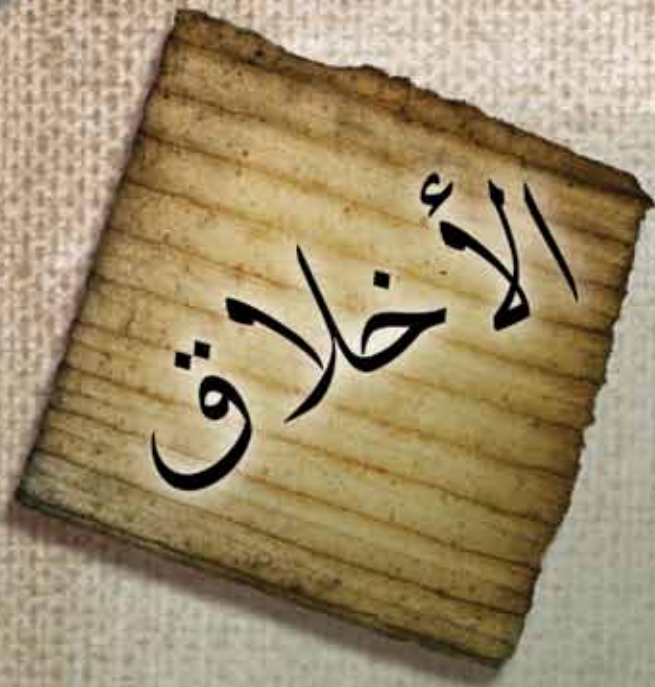 الأخلاق